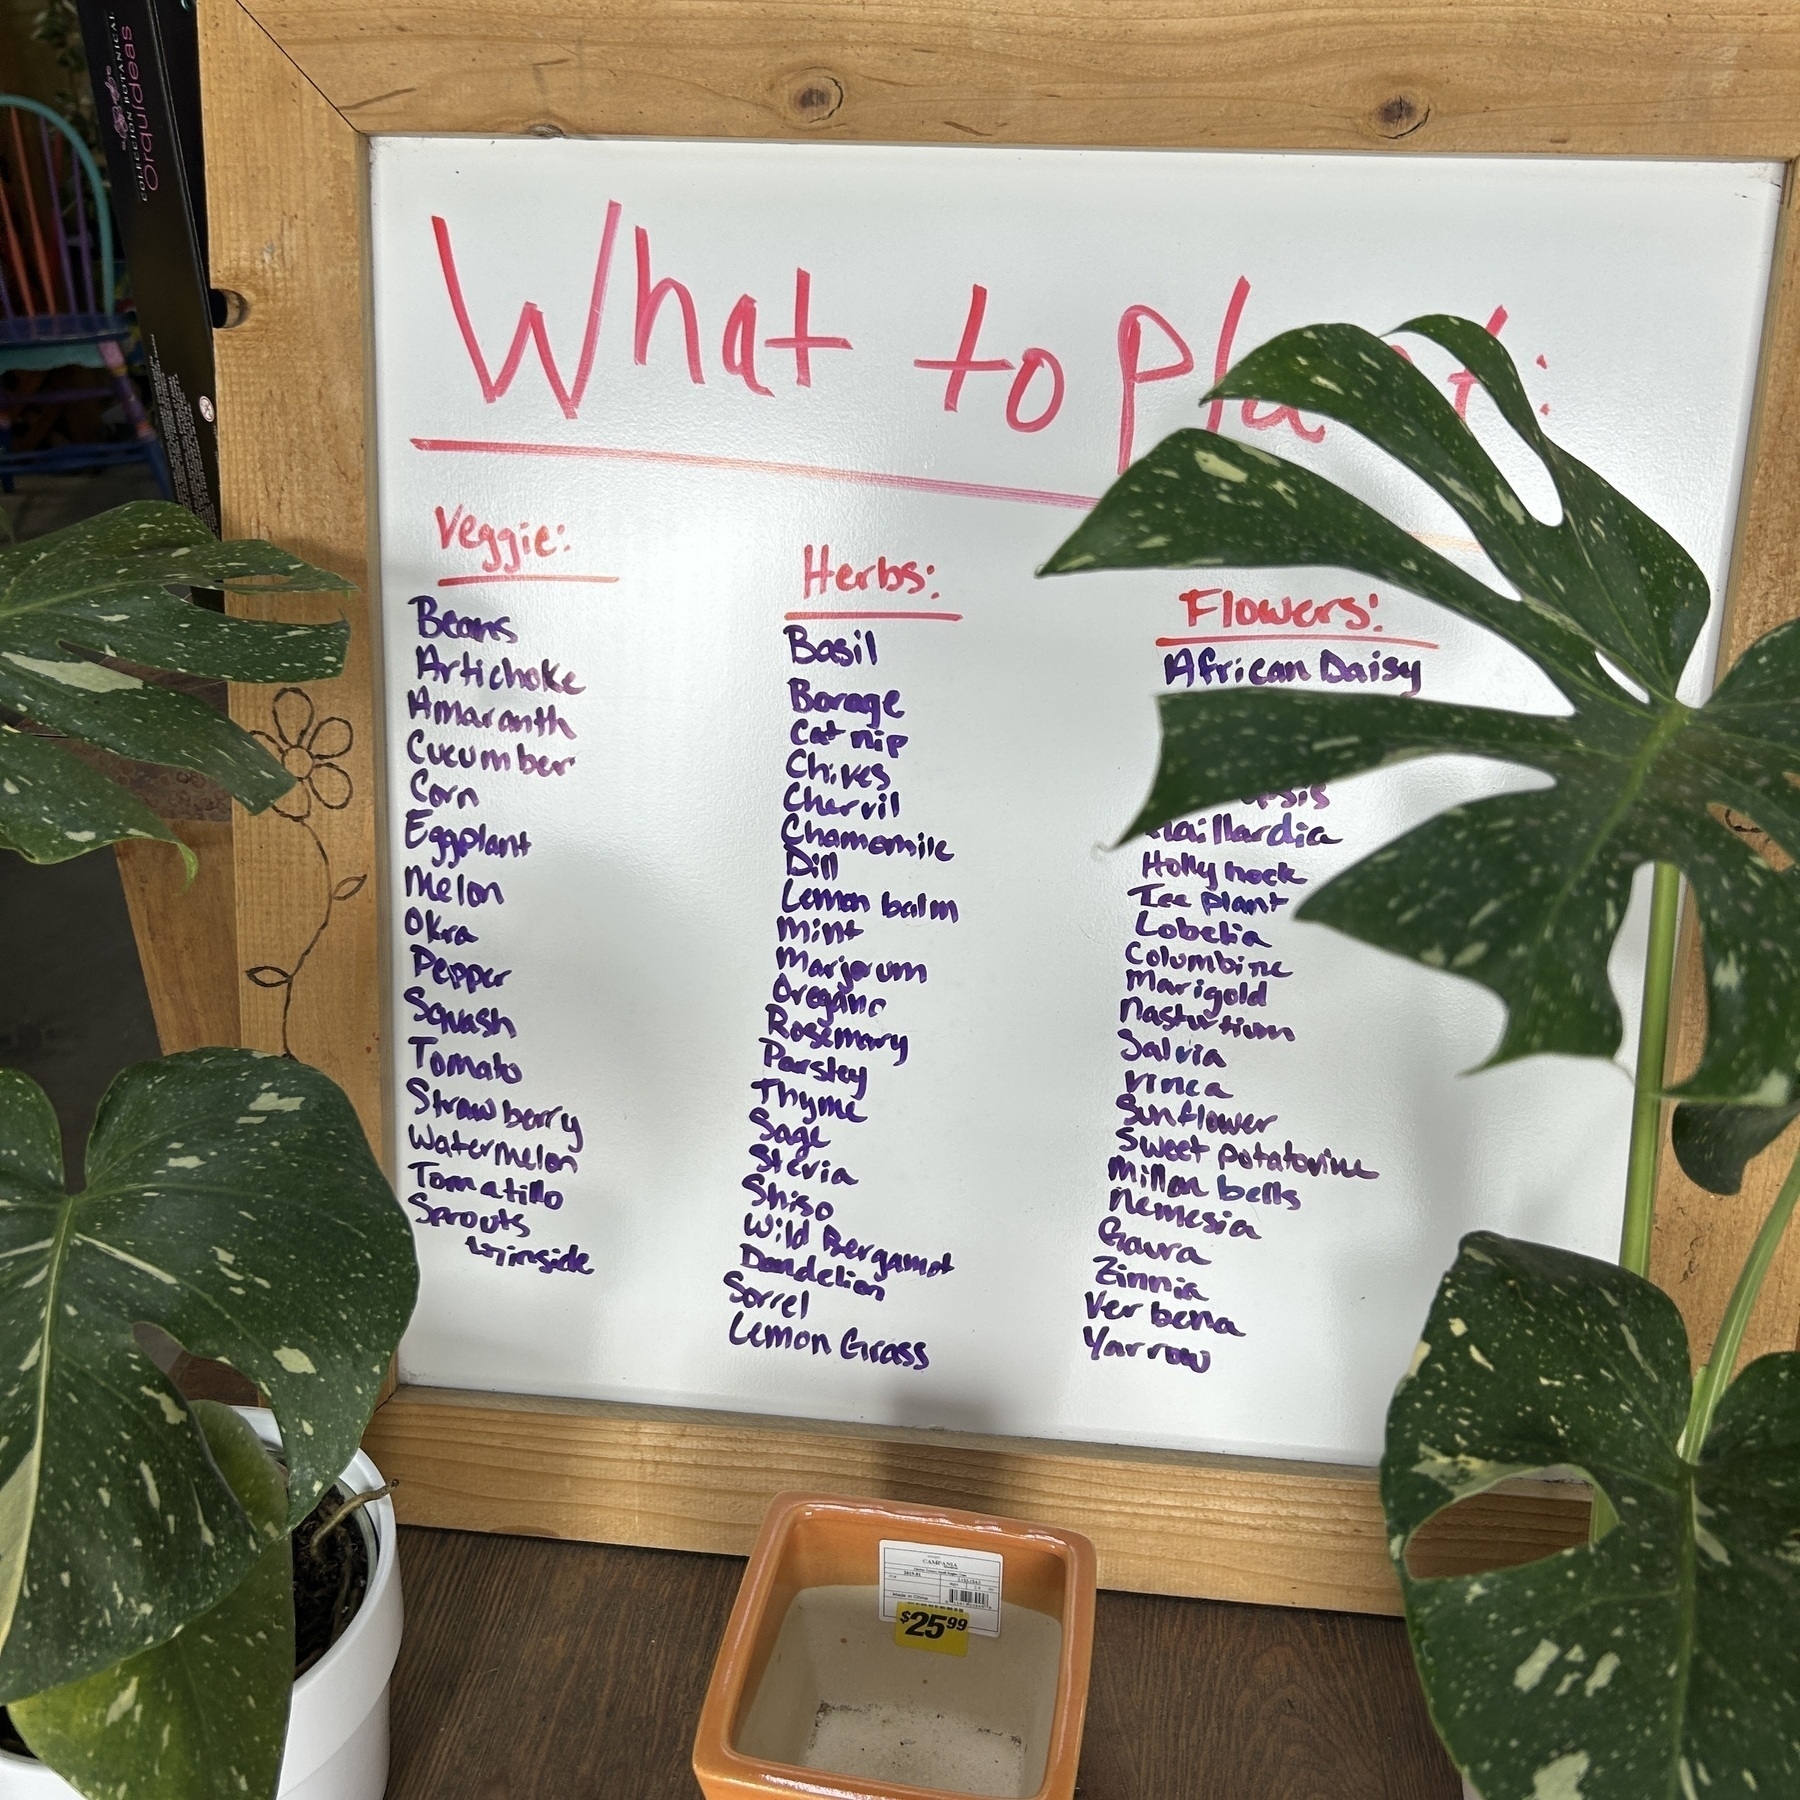 What to Pla t:
Veggie:
Beans
Artichoke
Amaranth
Cucumber
Corn
Eggplant
Melon
Okra
Pepper
Squash
Tomato
Strawberry
Watermelon
Tomatillo
Sprouts
inside
Herbs:
Basil
Borage
Cat nip
Chives
Chervil
Chamomile
Dill
Lemon balm
Mint
Marjorum
Oregano
Rosemary
Parsley
Thyme
Sage
Stevia
Shiso
Wild Bergamot
Dandelion
Sorrel
Lemon Grass
Flowers:
African Daisy
Holly hock
Ice plant
Lobelia
Columbine
Marigold
Nasturtium
Salvia
Vinca
Sunflower
Sweet potatovine
Millon bells
Nemesia
Gaura
Zinnia
Verbena
Yarrow
COLECCIÓN BOTANICAL
Orquídeas
CAMPANIA
Made in China
$25.99